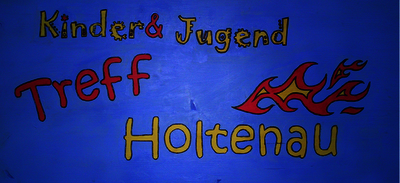 Kinder & Jugend
Treff
Holtenau